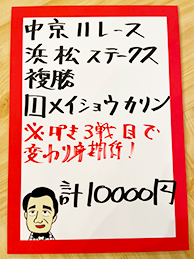 中京11レース
浜松ステークス
複勝
11メイショウカリン
※叩き3戦目で
変わり身期待!
計10000円